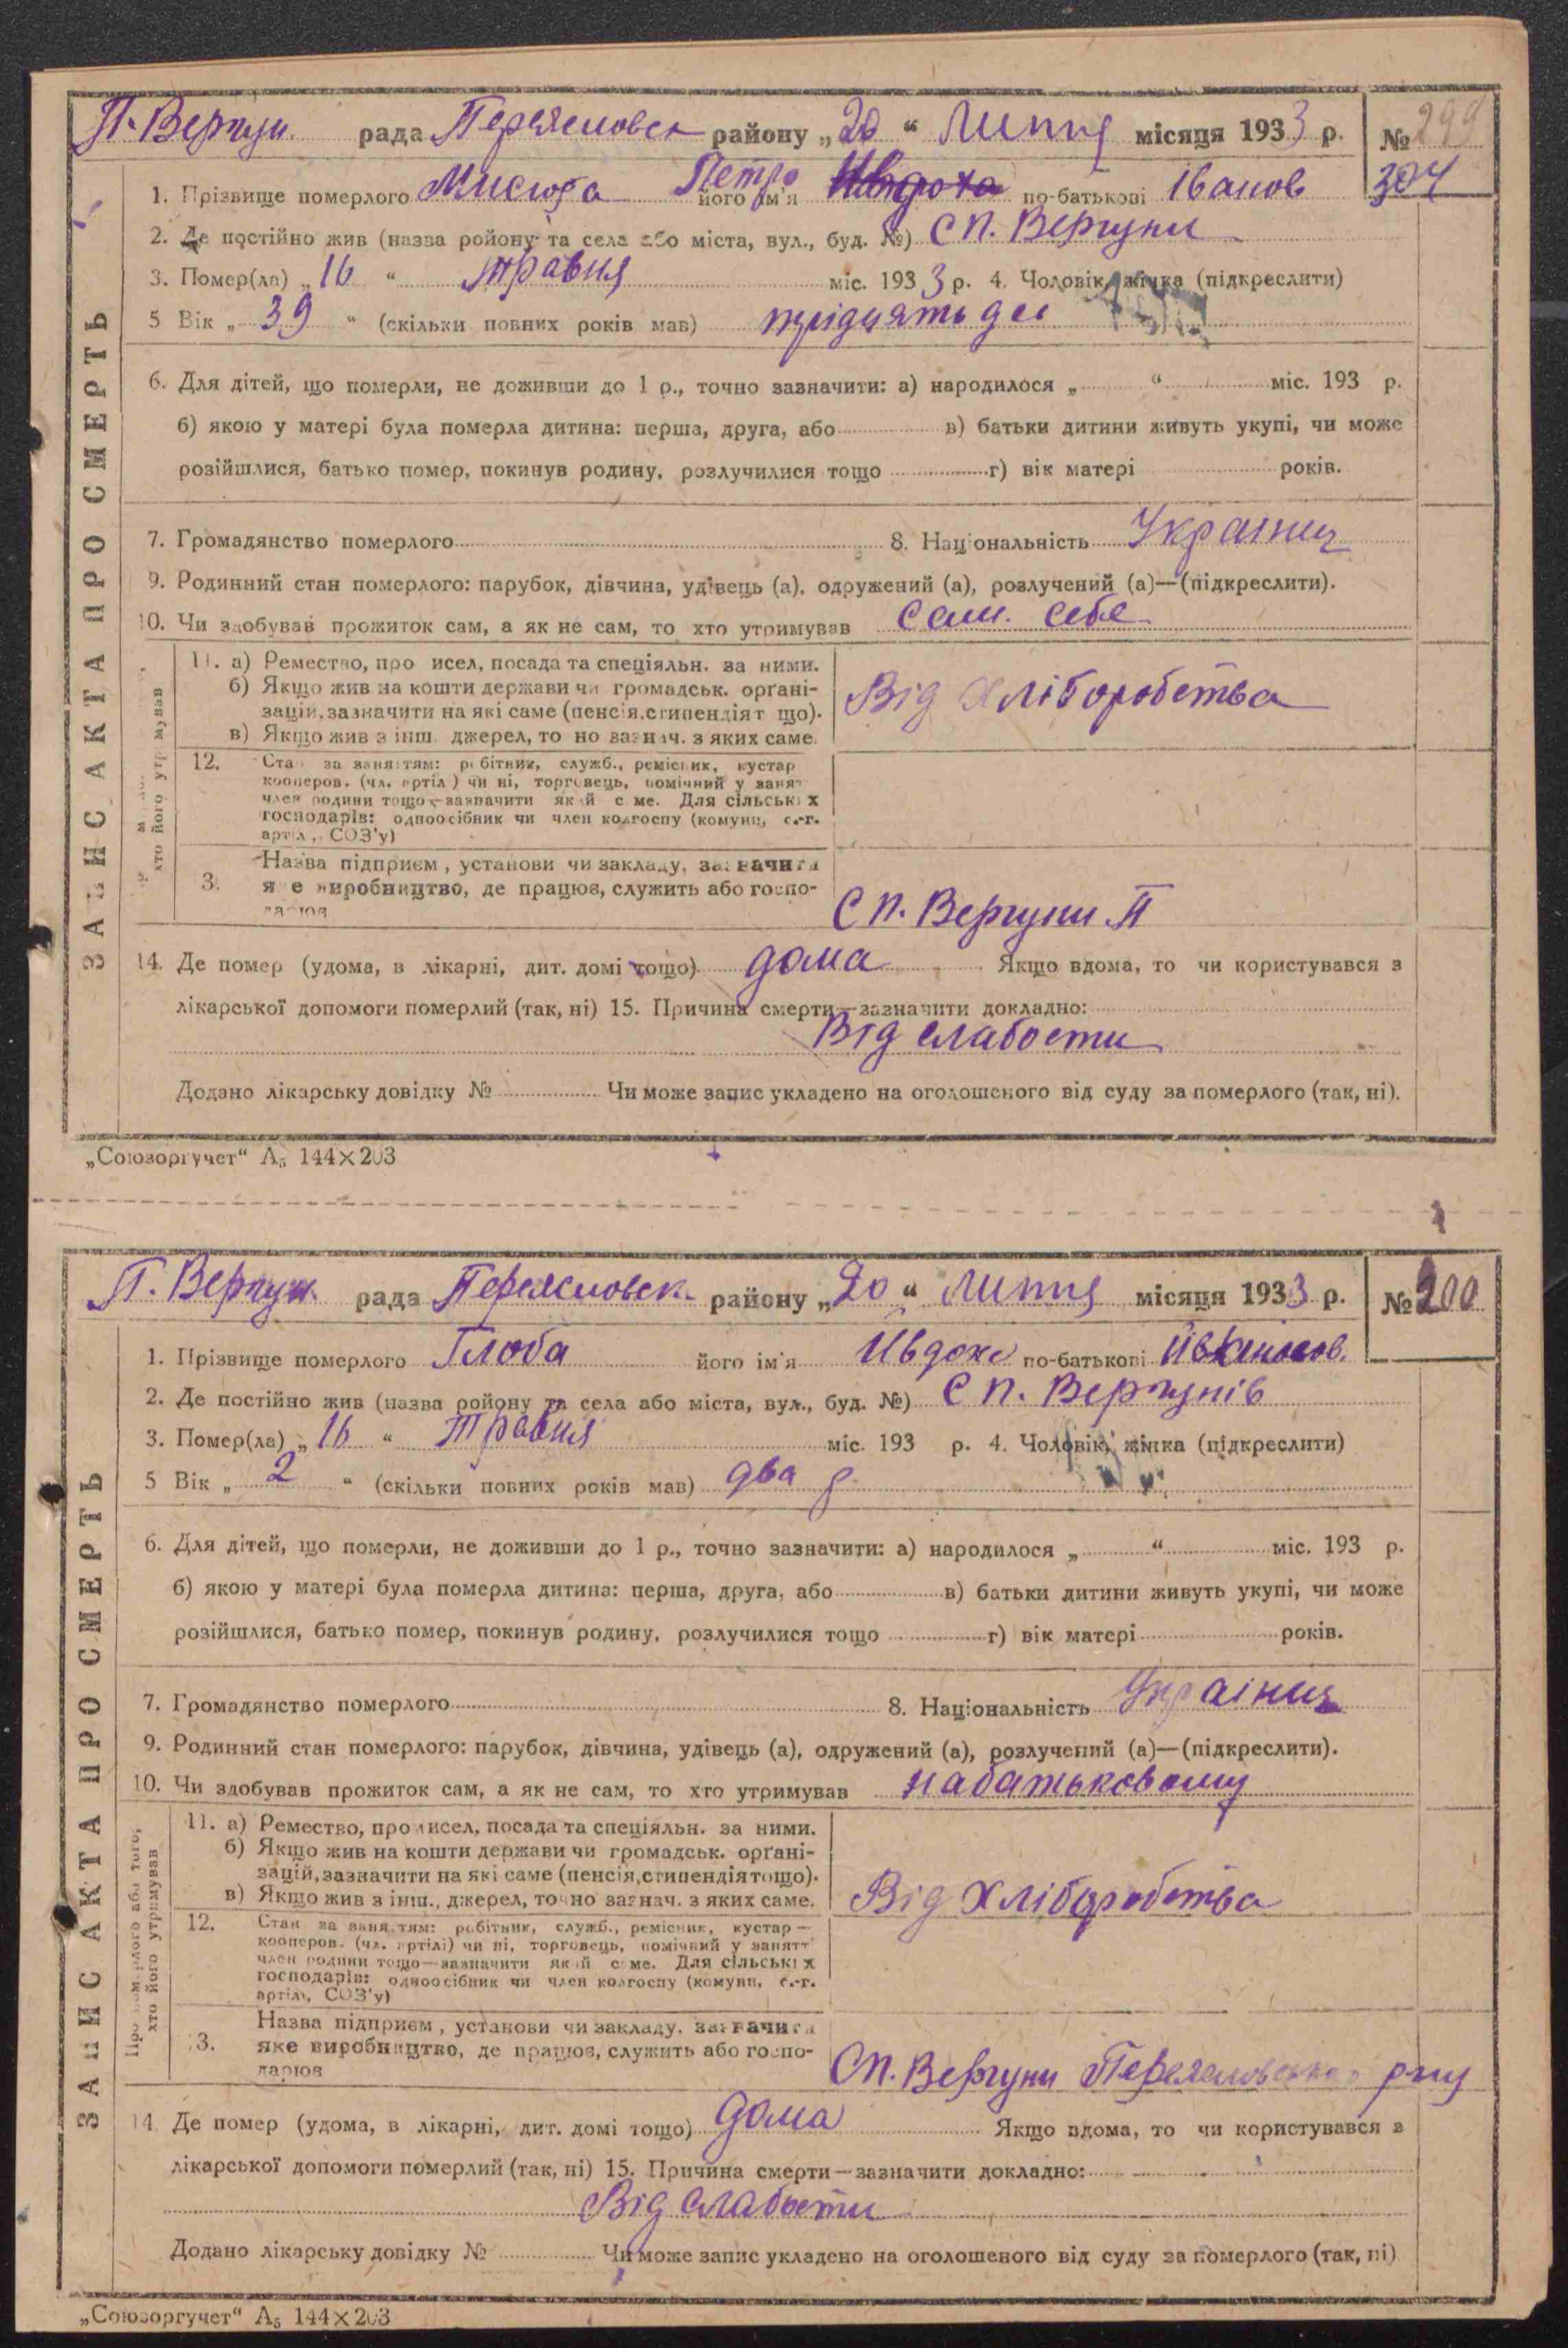 П. Вергун. рада Переяславск району „20“ Липня місяця 1933 р. № 299
1. Прізвище померлого Мисюра його ім'я Петро по-батькові Іванов 304
2. Де постійно жив (назва ройону та села або міста, вул., буд. №) С П. Вергуни
3. Помер(ла) „16“ травня міс. 1933 р. 4. Чоловік, жінка (підкреслити)
5 Вік „39“ (скільки повних років мав) трідцять дев
6. Для дітей, що померли, не доживши до 1 р., точно зазначити: а) народилося „ “ міс. 193 р.
б) якою у матері була померла дитина: перша, друга, або в) батьки дитини живуть укупі, чи може
розійшлися, батько помер, покинув родину, розлучилися тощо г) вік матері років.
7. Громадянство померлого 8. Національність Україниц
9. Родинний стан померлого: парубок, дівчина, удівець (а), одружений (а), розлучений (а)—(підкреслити).
10. Чи здобував прожиток сам, а як не сам, то хто утримував Сам. себе
11. а) Ремество, про исел, посада та спеціяльн. за ними.
б) Якщо жив на кошти держави чи громадськ. орґані-
зацій, зазначити на які саме (пенсія, стипендія т що).
в) Якщо жив з інш. джерел, то но зазнач. з яких саме.
Від Хліборобства
12. Стан за заняттям: робітник, служб., ремісник, кустар
кооперов. (чл. артіл ) чи ні, торговець, помічний у занят
член родини тощо—зазначити який с ме. Для сільських
господарів: одноосібник чи член колгоспу (комуни, с.-г.
артіл, СОЗ'у)
3. Назва підприєм, установи чи закладу, зазначити
я е виробництво, де працює, служить або госпо-
дарює
С П. Вергуни П
14. Де помер (удома, в лікарні, дит. домі тощо) дома Якщо вдома, то чи користувався з
лікарської допомоги померлий (так, ні) 15. Причина смерти—зазначити докладно:
Від слабости
Додано лікарську довідку № Чи може запис укладено на оголошеного від суду за померлого (так, ні).
ЗАПИС АКТА ПРО СМЕРТЬ
хто його утримував
„Союзоргучет“ А₅ 144×203
П. Вергун. рада Переяславск. району „20“ Липня місяця 1933 р. № 300
1. Прізвище померлого Глоба його ім'я Ивдоке по-батькові
2. Де постійно жив (назва ройону та села або міста, вул., буд. №) С П. Вергунів
3. Помер(ла) „16“ Травня міс. 193 р. 4. Чоловік, жінка (підкреслити)
5 Вік „2“ (скільки повних років мав) два р.
6. Для дітей, що померли, не доживши до 1 р., точно зазначити: а) народилося „ “ міс. 193 р.
б) якою у матері була померла дитина: перша, друга, або в) батьки дитини живуть укупі, чи може
розійшлися, батько помер, покинув родину, розлучилися тощо г) вік матері років.
7. Громадянство померлого 8. Національність Україниц
9. Родинний стан померлого: парубок, дівчина, удівець (а), одружений (а), розлучений (а)—(підкреслити).
10. Чи здобував прожиток сам, а як не сам, то хто утримував на батьковому
11. а) Ремество, промисел, посада та спеціяльн. за ними.
б) Якщо жив на кошти держави чи громадськ. орґані-
зацій, зазначити на які саме (пенсія, стипендія тощо).
в) Якщо жив з інш., джерел, точно зазнач. з яких саме.
Від Хліборобства
12. Стан за заняттям: робітник, служб., ремісник, кустар—
кооперов. (чл. артілі) чи ні, торговець, помічний у занятт
член родини тощо—зазначити який с ме. Для сільських
господарів: одноосібник чи член колгоспу (комуни, с.-г.
артіл, СОЗ'у)
3. Назва підприєм, установи чи закладу, зазначити
яке виробництво, де працює, служить або госпо-
дарює
СП. Вергуни Переяславськ р-ну
14 Де помер (удома, в лікарні, дит. домі тощо) Дома Якщо вдома, то чи користувався з
лікарської допомоги померлий (так, ні) 15. Причина смерти—зазначити докладно:
Від слабости
Додано лікарську довідку № Чи може запис укладено на оголошеного від суду за померлого (так, ні)
ЗАПИС АКТА ПРО СМЕРТЬ
Про померлого або того,
хто його утримував
„Союзоргучет“ А₅ 144×203